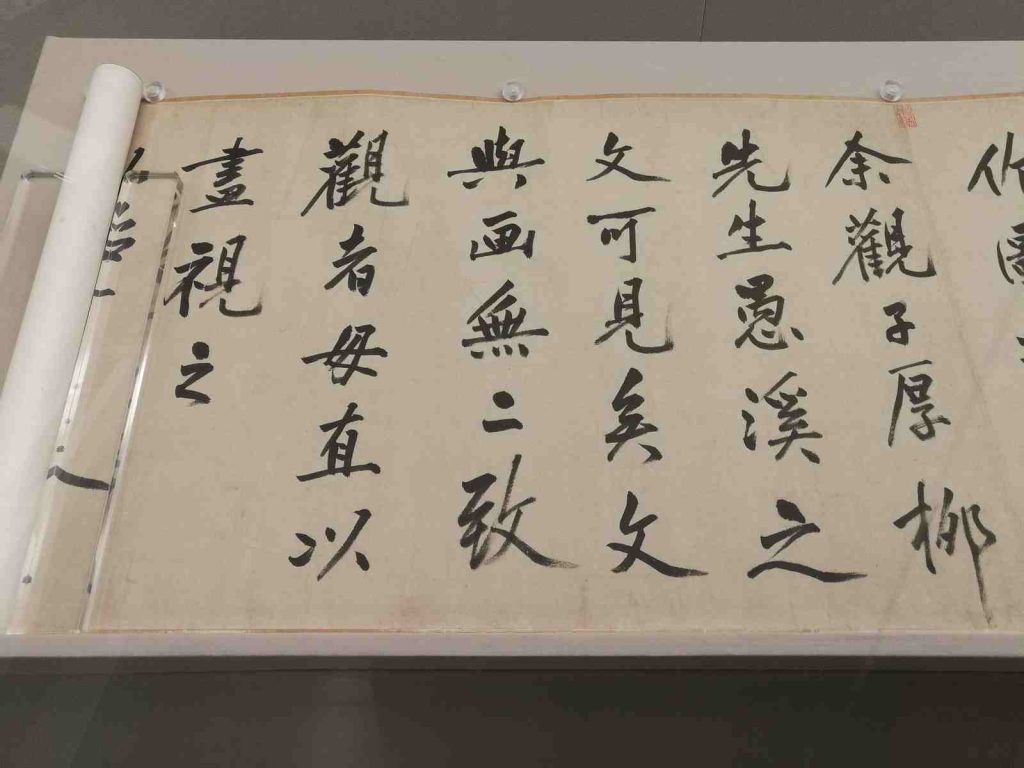 作圖
余觀子厚柳
先生愚溪之
文可見矣文
與画無二致
觀者毋直以
畫視之